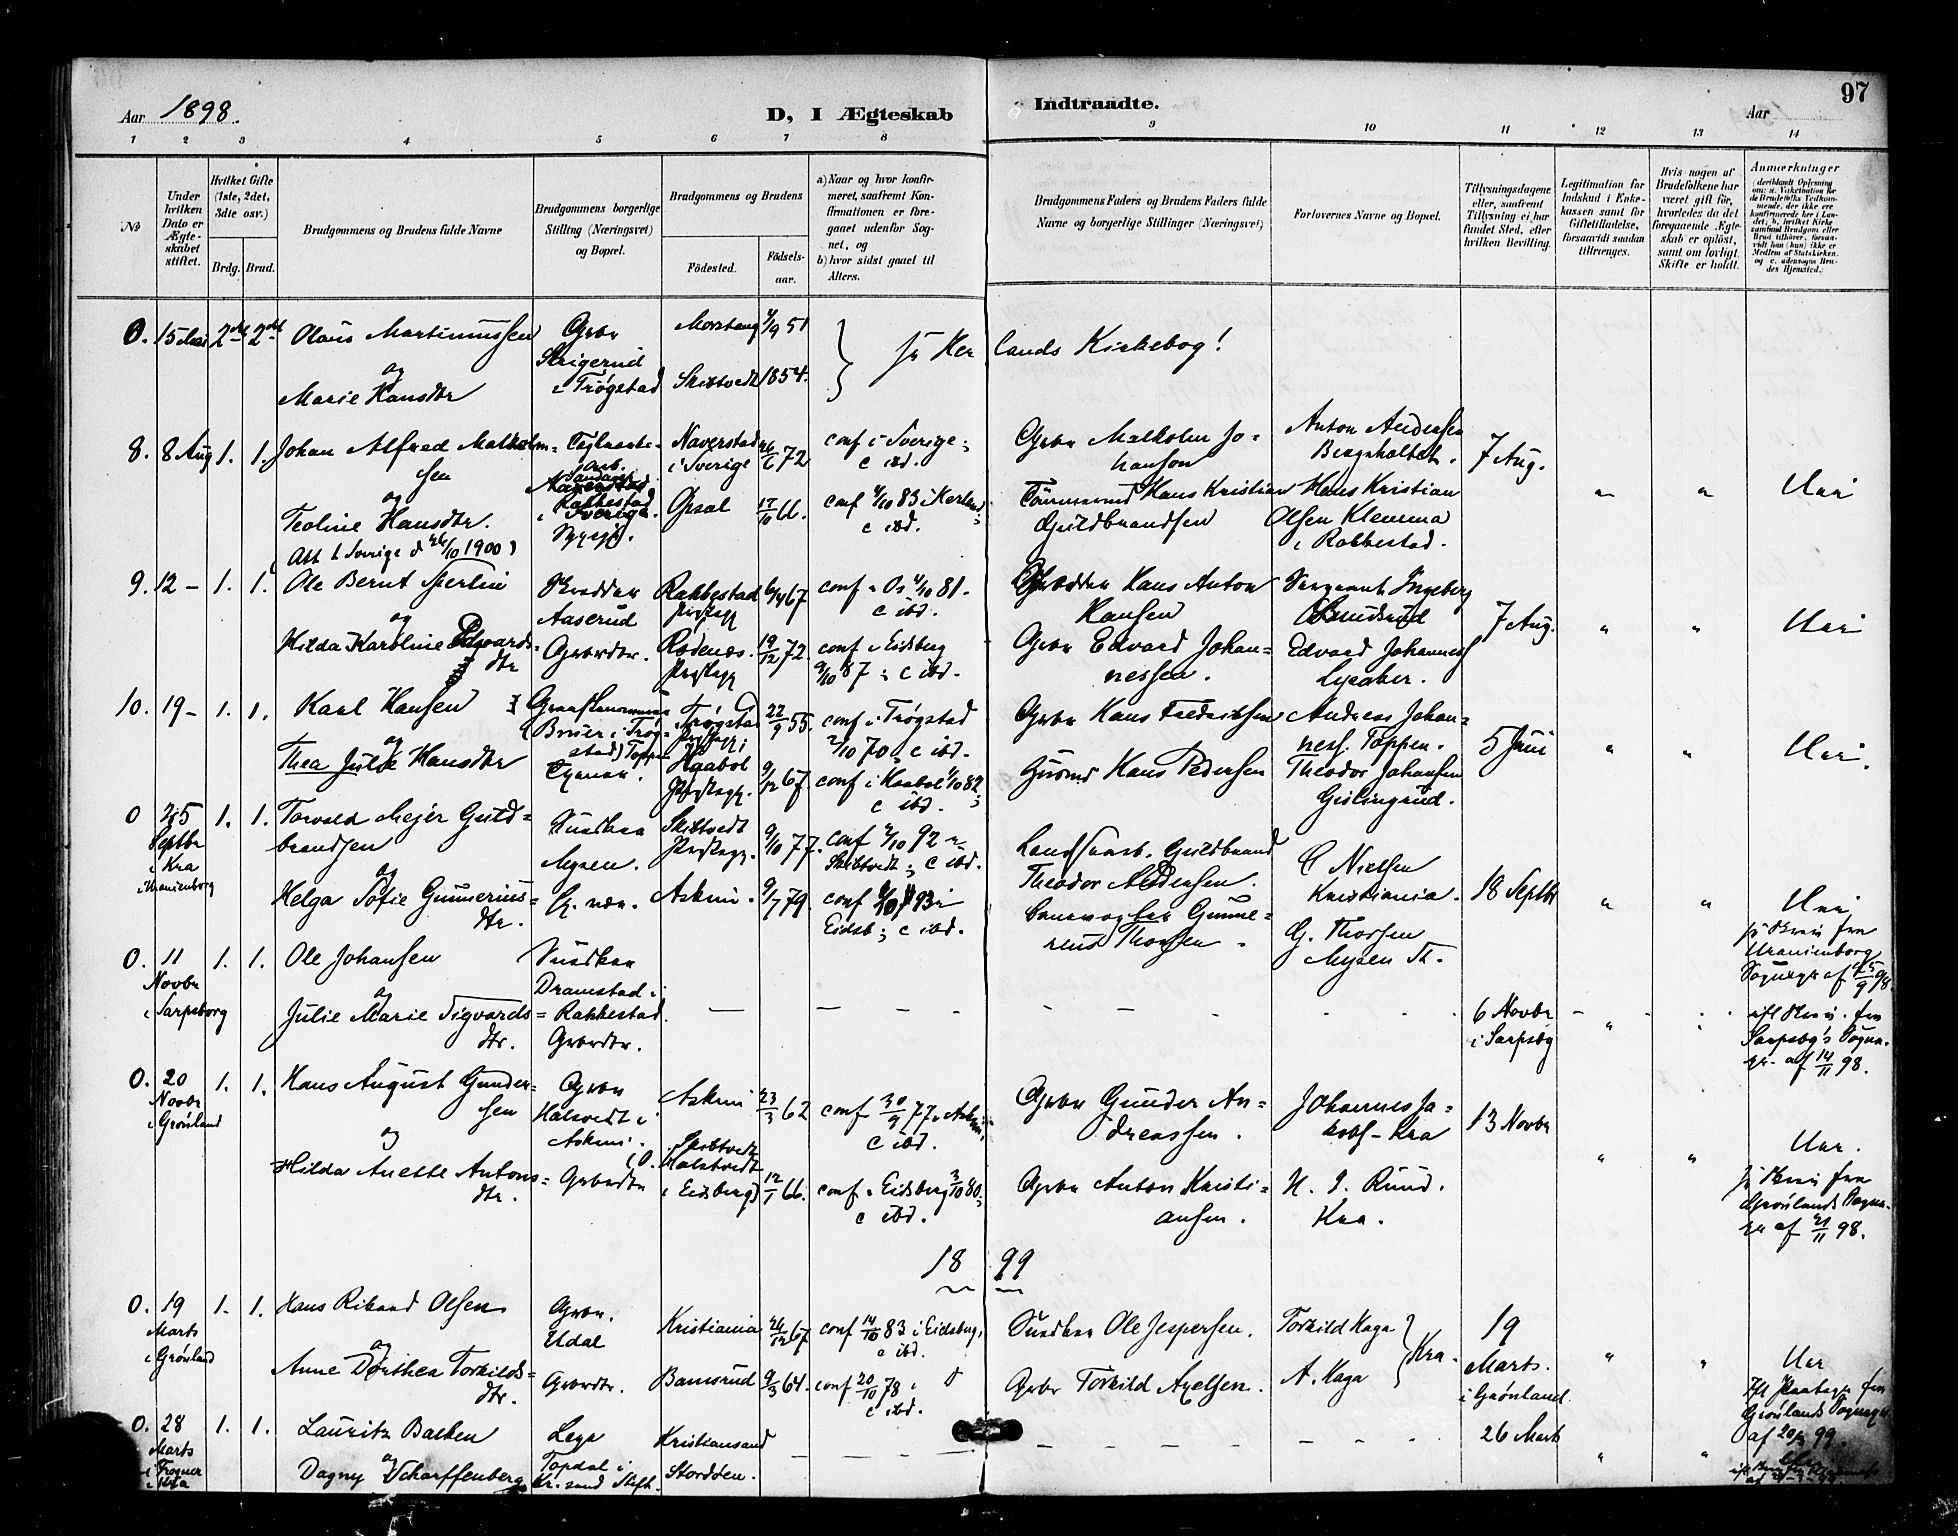 Aar 1898.
D, I Ægteskab Indtraadte.
Aar
97
1 2 3 4 5 6 7 8 9 10 11 12 13 14
No
Under hvilken Dato er Ægteskabet stiftet.
Hvilket Gifte (1ste, 2det, 3die osv.)
Brdg. Brud.
Brudgommens og Brudens fulde Navne
Brudgommens borgerlige Stilling (Næringsvei) og Bopæl.
Brudgommens og Brudens
Födested.
Födsels-aar.
a) Naar og hvor konfirmeret, saafremt Konfirmationen er foregaaet udenfor Sognet, og
b) hvor sidst gaaet til Alters.
Brudgommens Faders og Brudens Faders fulde Navne og borgerlige Stillinger (Næringsvei)
Forlovernes Navne og Bopæl.
Tillysningsdagene eller, saafremt Tillysning ei har fundet Sted, efter hvilken Bevilling.
Legitimation for Indskud i Enkekassen samt for Giftetilladelse, forsaavidt saadan tiltrænges.
Hvis nogen af Brudefolkene har været gift før, hvorledes da det foregaaende Ægteskab er opløst, samt om lovligt Skifte er holdt.
Anmærkninger
0. 15 Mai 2det 2det
Olaus Martinussen
og
Marie Hansdtr
Grbr
Skigerud
i Trøgstad
4/9 51
Skiptvedt 1854.
jfr Herlands Kirkebog!
8. 8 Aug 1. 1.
Johan Alfred Malkolmsen
og
Teoline Hansdtr.
(Att t Sverige d 26/10 1900)
Naverstad i Sverige 26/6 72
17/10 66.
conf i Sverige; c ibd.
conf 4/10 83 i Herland; c ibd.
Grbr Malkolm Johanson
Tømmermd Hans Kristian Guldbrandsen
Anton Andersen
Hans Kristian Olsen Klemma i Rakkestad.
7 Aug.
" " Uai
9. 12 - 1. 1.
Ole Bernt
og
Hilda Karoline Edvardsdtr
Skrædder
Aaserud
Grbrdtr.
Rakkestad Prstegj 67
Rødenæs Prstegj 19/12 72.
conf i Os 4/10 81. c ibd.
conf i Eidsberg 2/10 87; c ibd.
Skrædder Hans Anton Hansen
Grbr Edvard Johannessen.
Sergeant Ingeberg
Edvard Johanness
7 Aug.
" " Uai
10. 19 - 1. 1.
Karl Hansen
og
Thea Julie Hansdtr
Trøgstad Prstegj; 22/9 55.
Haabøl Prstegj. 9/12 67.
conf i Trøgstad 2/10 70; c ibd.
conf i Haabøl 1/10 82; c ibd.
Grbr Hans Fredriksen
Gusmd Hans Pedersen
Andreas Johanness. Toppen.
Theodor Johansen Gislingrud.
5 Juni
" " Uai.
0 25 Septbr i Kra i Uranienborg 1. 1.
Torvald Mejer Guldbrandsen
og
Helga Sofie Gunneriusdtr.
Snedker
Mysen.
Skiptvedt Prstegj. 9/10 77.
Askim. 9/7 79.
conf 2/10 92 i Skibtvedt; c ibd.
conf 93 i Eidsb; c ibd.
Guldbrand Theodor Andersen.
Banevogter Gunnerius Thorsen.
C Nielsen
Kristiania.
G. Thorsen
Mysen St.
18 Septbr
" " Uai
fra Uranienborg Sognepr af 25/9 98.
0. 11 Novbr i Sarpsborg 1. 1.
Ole Johansen
og
Julie Marie Sigvardsdtr.
Snedker
Dramstad i
Rakkestad.
Grbrdtr.
6 Novbr
i Sarpsbg
fra Sarpsbg's Sognepr. af 14/11 98.
0. 20 Novbr i Grønland 1. 1.
Hans August Gundersen
og
Hilda Anette Antonsdtr.
Grbr
Halsvedt i
Askim.
Grbrdtr
Askim 23/3 62
Skibtvedt
(i Eidsberg) 12/1 66.
conf 30/9 77 i Askim; c ibd.
conf i Eidsberg 3/10 80; c ibd.
Grbr Gunder Andreassen.
Grbr Anton Kristiansen.
Johannes Jakobs - Kra
H. I. Ruud.
Kra.
13 Novbr
" " Uai.
fra Grønlands Sognepr af 21/11 98.
18 99
0. 19 Marts i Grønland 1. 1.
Hans Rikard Olsen
og
Anne Dorthea Torkildsdtr.
Grbr.
Udal
Grbrdtr.
Kristiania 26/12 67
Bamsrud 9/3 64.
conf 14/10 83 i Eidsberg, c ibd.
conf 20/10 78 c ibd.
Snedker Ole Jespersen.
Grbr Torkild Axelsen.
Torkild Kaga
A. Kaga
Kra.
19
Marts.
i Grønland
" " Uai
Ifl fra Grønlands Sognepr af 20/3 99.
0. 28 Marts i Frogner i Kra 1. 1.
Lauritz Bakken
og
Dagny Scharffenberg
Læge
Topdal i
Kr.sand Stift.
Kristiansand
Stordøen.
26 Mart
" "